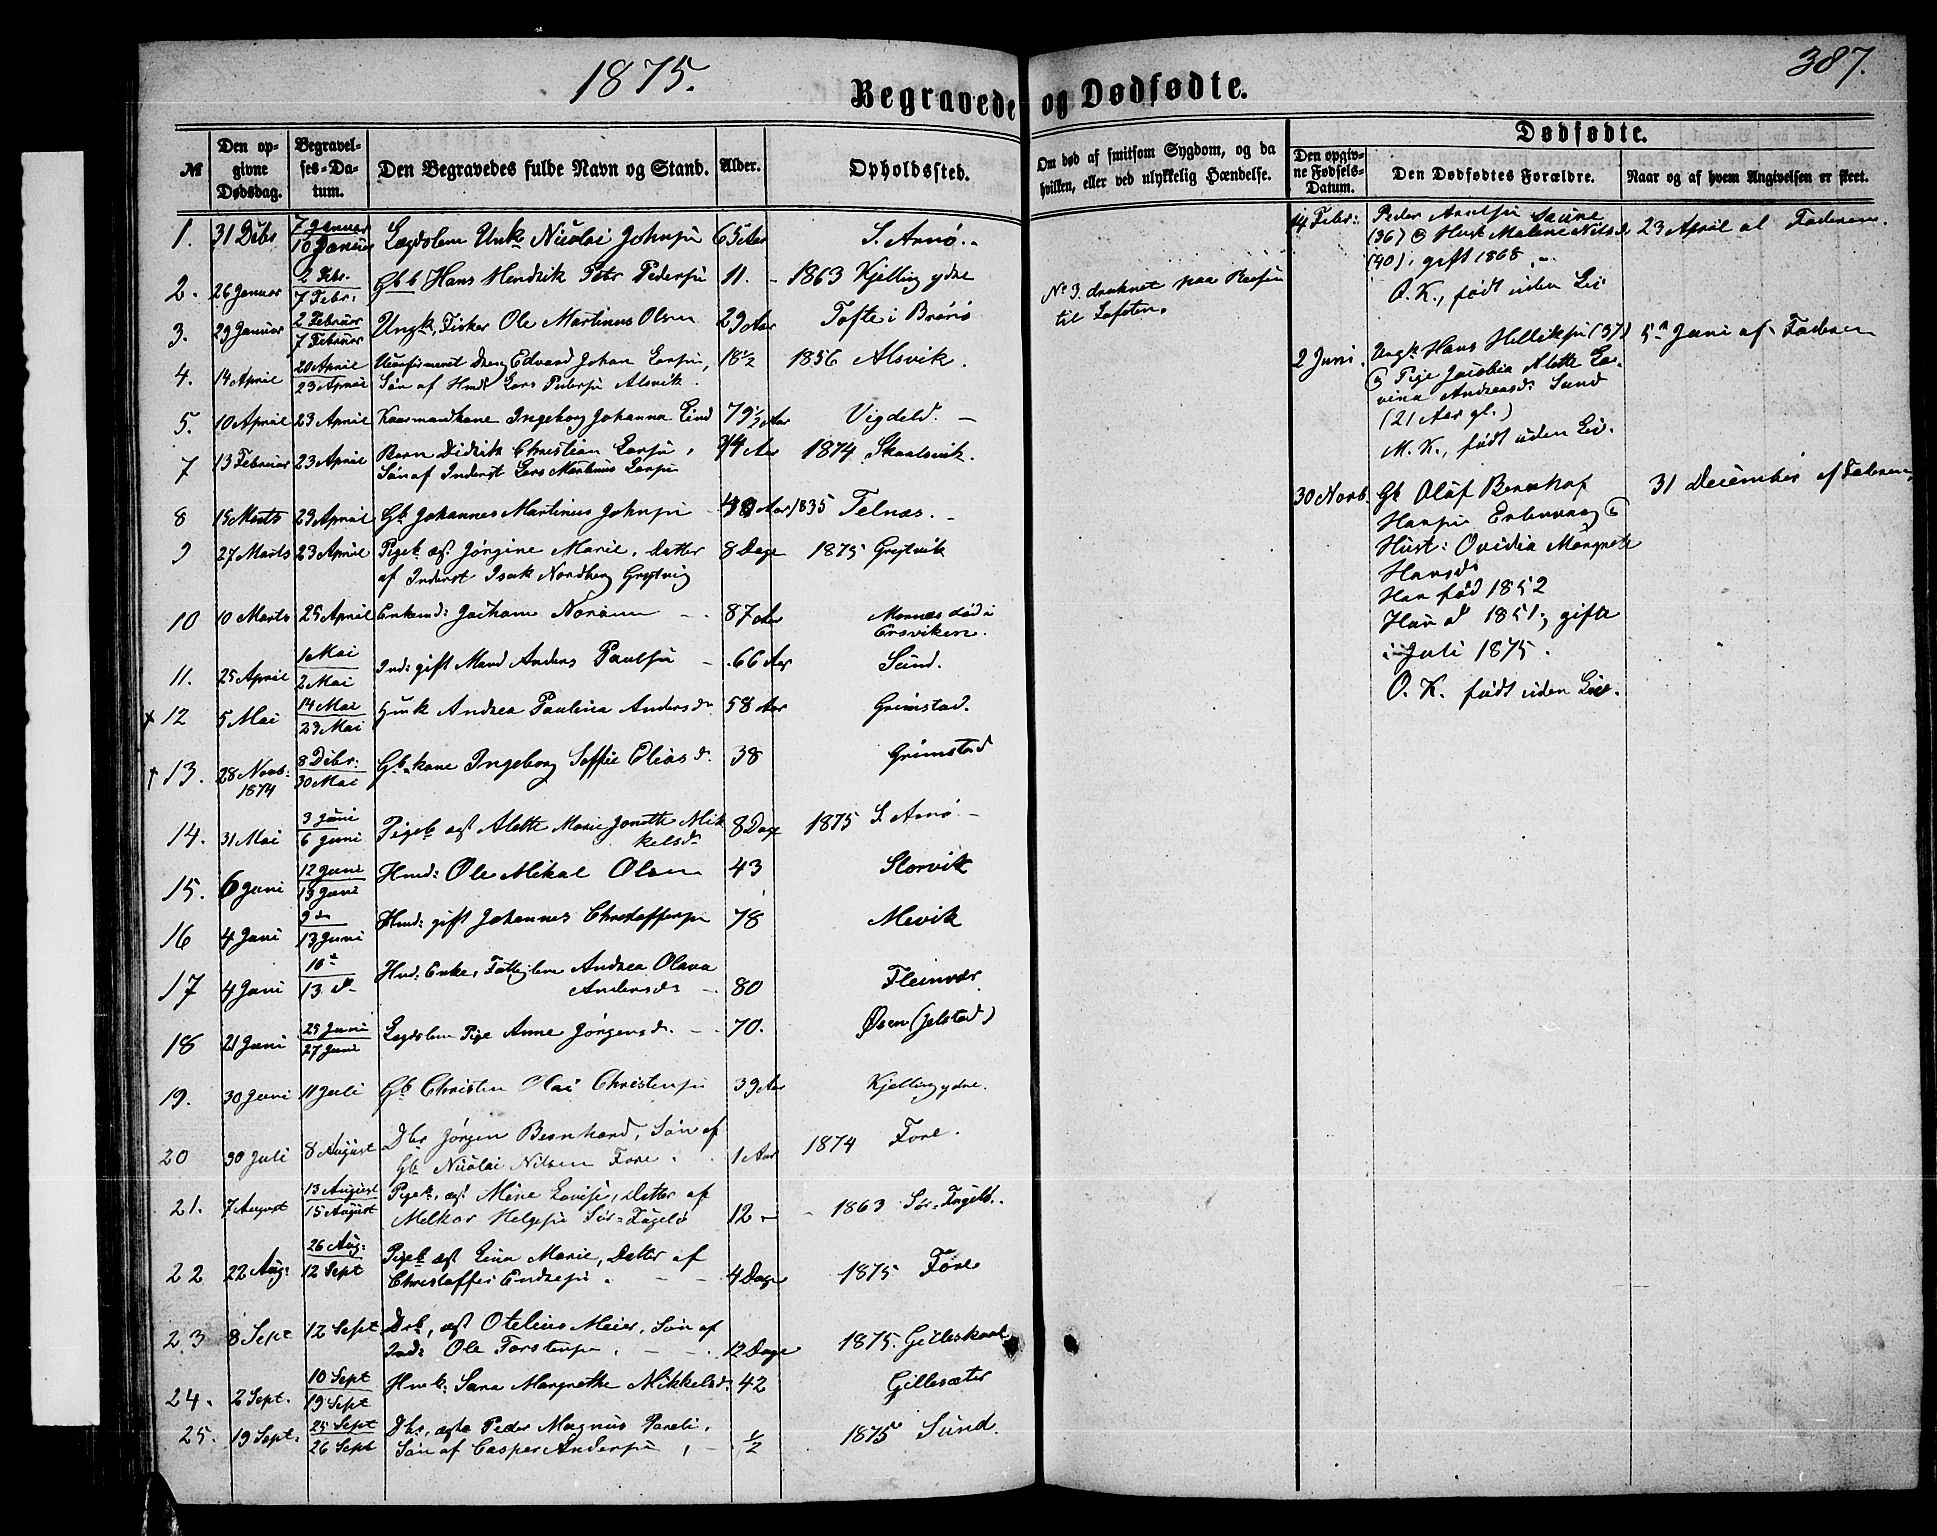 1875.
387.
Begravede og Dødfødte.
№
Den opgivne Dødsdag.
Begravelses-Datum.
Den Begravedes fulde Navn og Stand.
Alder.
Opholdssted.
Om død af smitsom Sygdom, og da hvilken, eller ved ulykkelig Hændelse.
Dødfødte.
Den opgivne Fødsels-Datum.
Den Dødfødtes Forældre.
Naar og af hvem Angivelsen er skeet.
1. 31 Dcbr 7 Januar 10 Januar Lægdslem Unk. Nicolai Johnsen 65 Aar S. Arnø.
2. 26 Januar 2 Febr. 7 Febr: Gbb Hans Hendrik Petr Pedersen 11. - 1863 Kjelling ydre
3. 29 Januar 2 Februar 7 Februar Ungk. Fisker Ole Martinus Olsen 29 Aar Tofte i Brønø
No 3. druknet paa Reisen
til Lofoten.
4. 14 April 20 April 23 April Ukonfirmeret Dreng Edvard Johan Larsen, 18 1/2 1856 Alsvik.
Søn af Hmd Lars Pedersen Alsvik.
5. 10 April 23 April Kaarmandkone Ingeborg Johanna Eind 79 1/2 Aar Vigdeld. -
7 13 Februar 23 April Barn Didrik Christian Larsen, 3/4 Aar 1874 Skaalsvik.
Søn af Inderst Lars Martinus Larsen
8 15 Marts 23 April Gb Johannes Martinus Johnsen 40 Aar 1835 Telnæs. -
9 27 Marts 23 April Pigeb. ægt. Jørgine Marie, Datter 8 Dage 1875 Grytvik
af Inderst Isak Nordberg Grytvig
10 10 Marts 25 April Enkemd: Jochum 87 Aar Mornæs død i
11. 25 April 1 Mai 2 Mai Ind: gift Mand Anders Paulsen - 66 Aar Sund.
+ 12 5 Mai 14 Mai 23 Mai Huk Andrea Paulina Andersdr 58 Aar Grimstad.
+ 13. 28 Novb: 1874 8 Dcbr: 30 Mai Gb. kone Ingeborg Soffie Eliasd. 38 Grimstad
14. 31 Mai 3 Juni 6 Juni Pigeb ægt Alette Marie Jonette Mik 8 Dage 1875 S. Arnø -
kelsdr
15. 6 Juni 12 Juni 13 Juni Hmd: Ole Mikal Olsen 43 Storvik
16 4 Juni 9 do 13 Juni Hmd: gift Johannes Christoffersen 78 Mevik
17 4 Juni 10 d 13 d. Hmd: Enke, Fattiglem Andrea Olava
Andersdr - 80 Fleinvær
18 21 Juni 25 Juni 27 Juni Lægdslem Pige Anne Jørgensd. - - 70. Øsen (Jelstad)
19. 30 Juni 11 Juli Gb Christen Olai Christensen 39 Aar Kjelling ydre.
20 30 Juli 8 August Dbr Jørgen Bernhard, Søn af
Gb Nicolai Nilsen Fore. 1 Aar 1874 Fore.
21. 7 August 13 August 15 August Pigeb. ægt. Mine Lovise, Datter af
Melkor Helgesen Sør-Fugelø 12 - 1863 Sør-Fugelø.
22 22 Aug: 26 Aug: 12 Sept Pigeb ægt Lina Marie, Datter af
Christoffer Endresen. - - 4 Dage 1875 Fore
23 8 Sept 12 Sept Drb, ægt Otelius Meier, Søn af
Ind: Ole Torstensen, - - 12 Dage 1875. Gilleskaal
24. 2 Sept. 10 Sept 19 Sept Hmk: Sara Margrethe Mikkelsd: 42 Gillesæter
25. 19 Sept: 25 Sept 26 Sept Dbr, ægte Peder Magnus Pareli,
Søn af Casper Andersen, - 1/2 1875 Sund.
14 Febr: Peder Arntsen Saune
(36) & Hust Malene Nilsd. 23 April al Faderen.
(40), gift 1868.
O. K., født uden Liv.
2 Juni. Ungk Hans Hilliksen (37) 5n Juni af Faderen
& Pige Jacobia Alette La-
vina Andreasdr Sund
(21 Aar gl.)
M. K., født uden Liv.
30 Novb. Gb Olaf Bernhof 31 December af Faderen,
Hansen &
Hust: Ovidia Margrete
Hansdr
Han fød 1852
Hun d 1851, gifte
i Juli 1875.
O. K. født uden Liv.